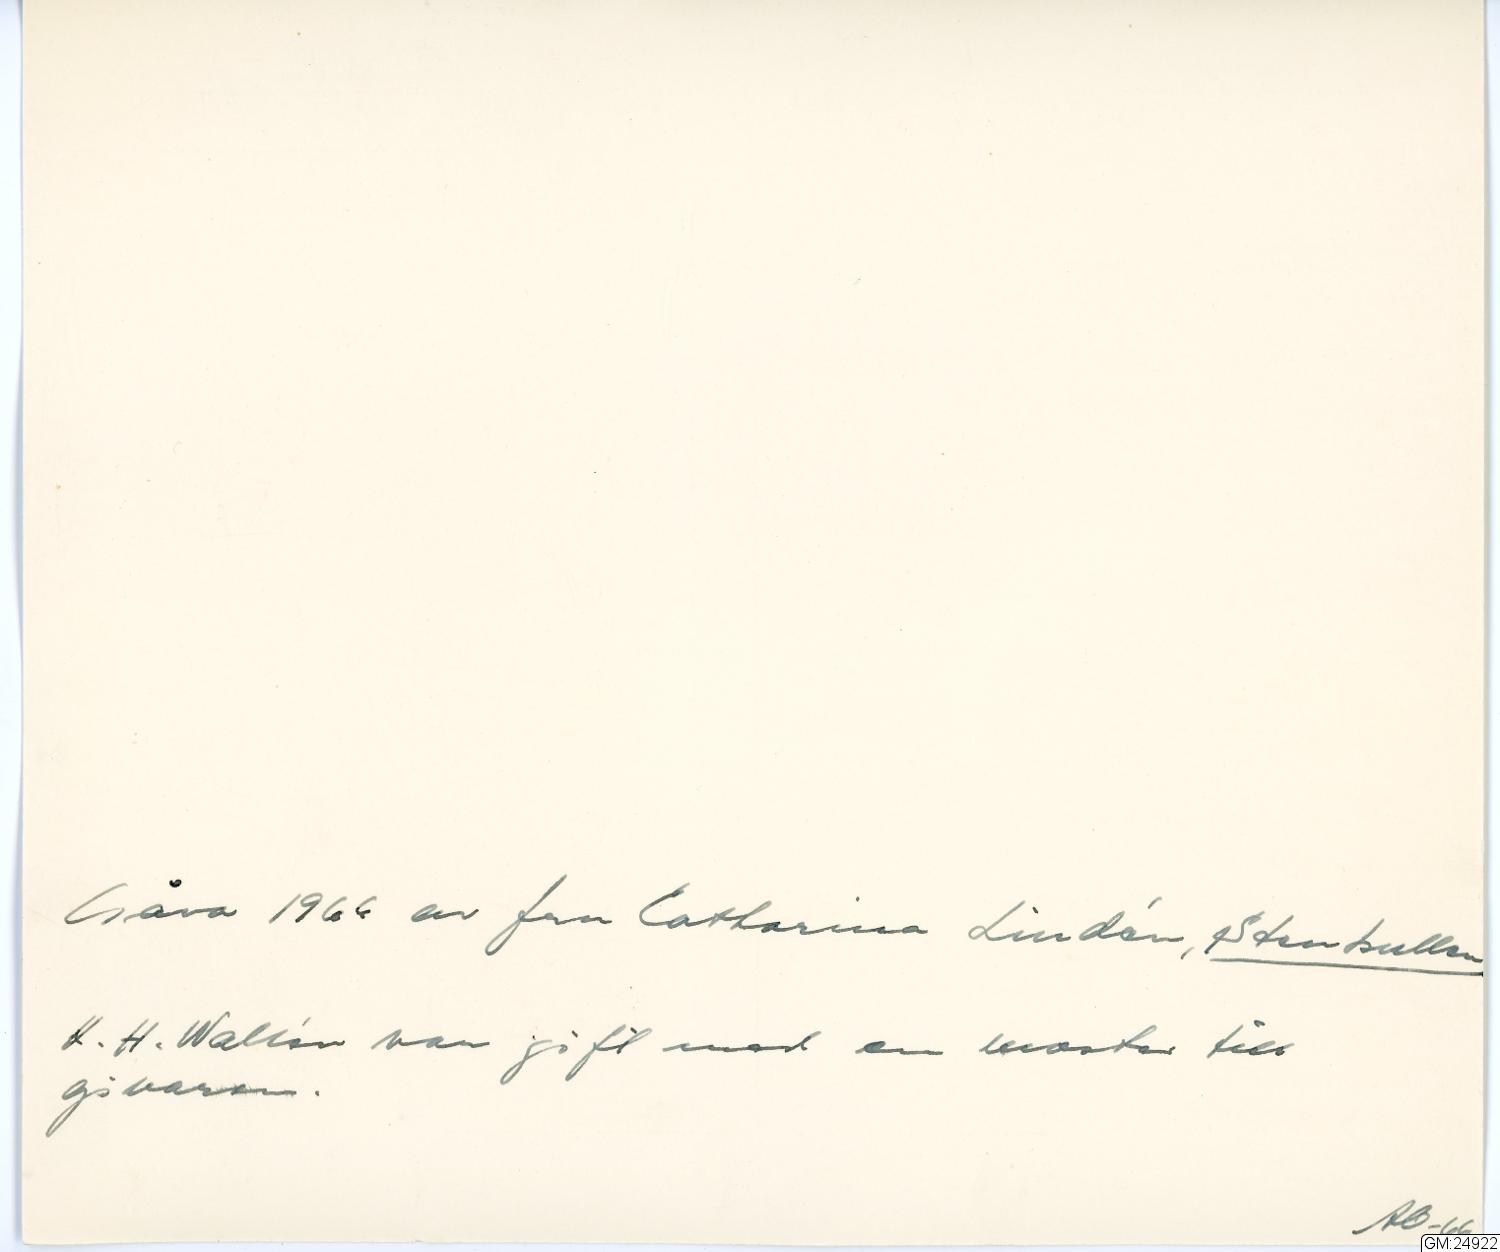 Gåva 1966 av fru Catharina Lindén, Stenkullen
H. H. Wallén var gift med en moster till
givaren.
AB-66
GM:24922